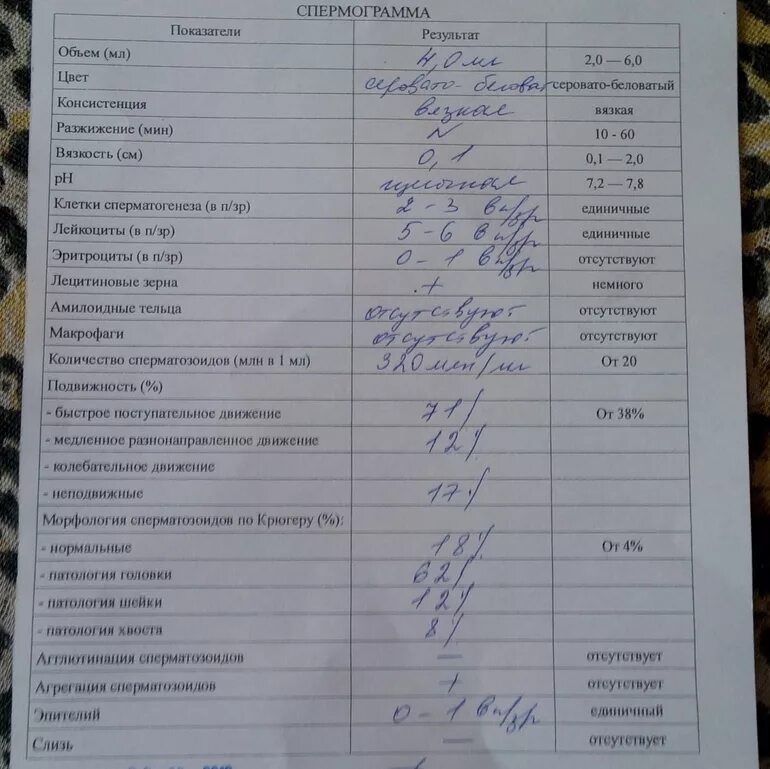 СПЕРМОГРАММА
Показатели Результат
Объем (мл) 4,0 мл 2,0 — 6,0
Цвет серовато-беловат серовато-беловатый
Консистенция вязкая вязкая
Разжижение (мин) N 10 - 60
Вязкость (см) 0,1 0,1 — 2,0
pH щелочная 7,2 — 7,8
Клетки сперматогенеза (в п/зр) 2-3 в п/зр единичные
Лейкоциты (в п/зр) 5-6 в п/зр единичные
Эритроциты (в п/зр) 0-1 в п/зр отсутствуют
Лецитиновые зерна + немного
Амилоидные тельца отсутствуют отсутствуют
Макрофаги отсутствуют отсутствуют
Количество сперматозоидов (млн в 1 мл) 320 млн/мл От 20
Подвижность (%)
- быстрое поступательное движение 71% От 38%
- медленное разнонаправленное движение 12%
- колебательное движение
- неподвижные 17%
Морфология сперматозоидов по Крюгеру (%):
- нормальные 18% От 4%
- патология головки 62%
- патология шейки 12%
- патология хвоста 8%
Агглютинация сперматозоидов — отсутствует
Агрегация сперматозоидов + отсутствует
Эпителий 0-1 в п/зр единичный
Слизь — отсутствует